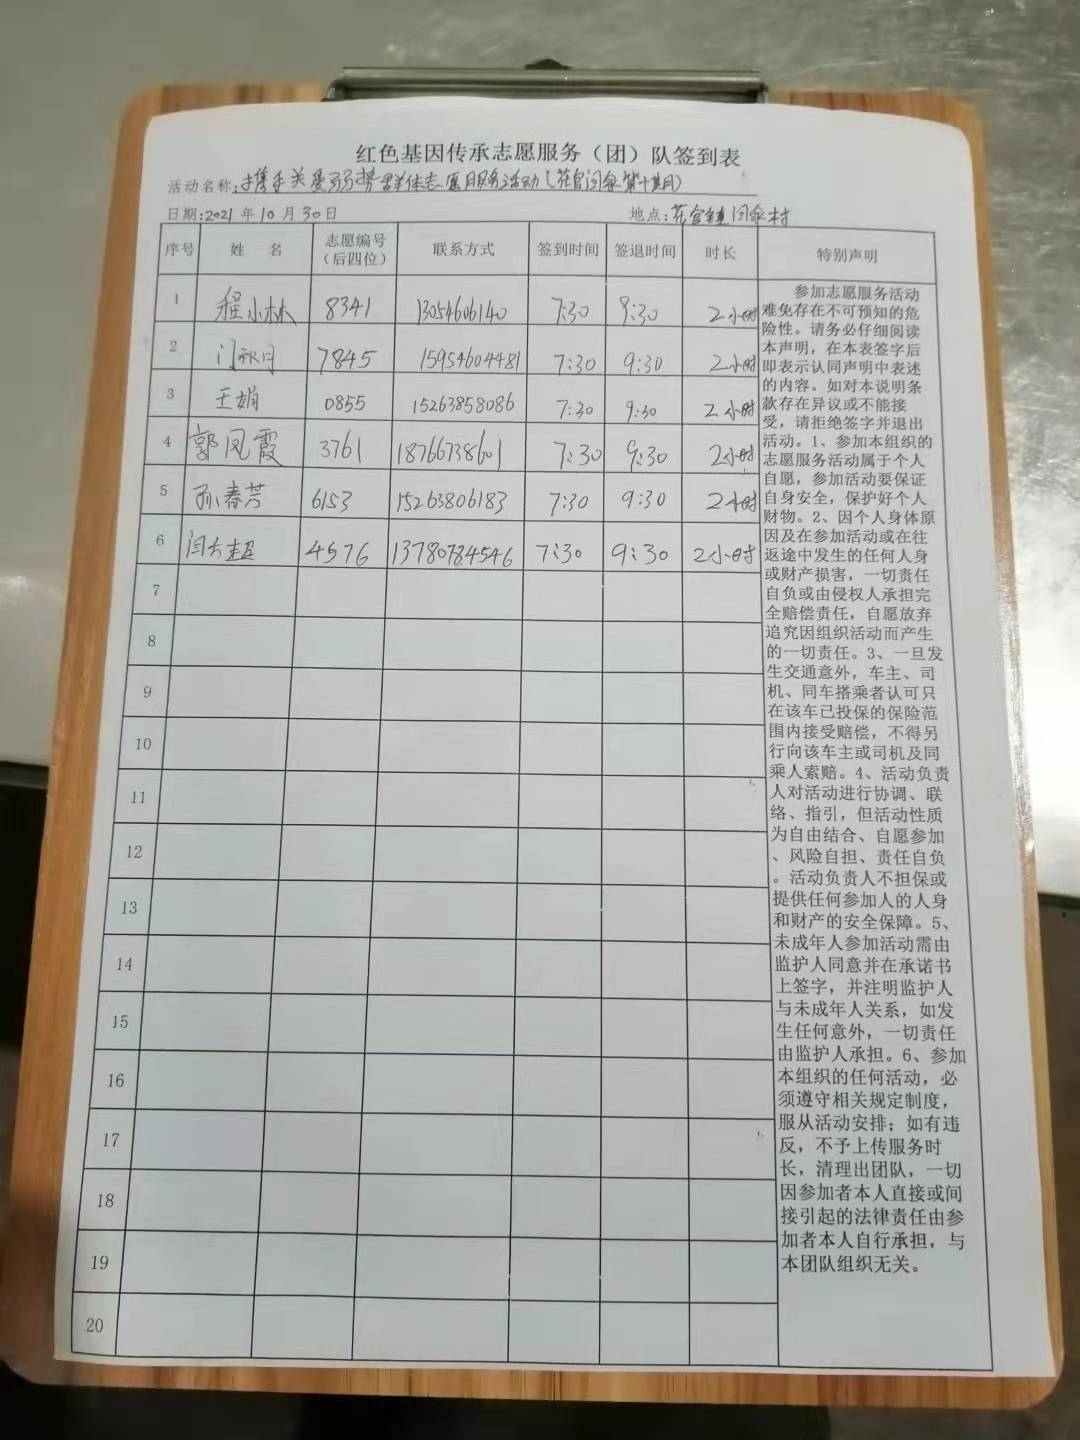 红色基因传承志愿服务（团）队签到表
活动名称:携手关爱弱势群体志愿服务活动(花官闫家第十期)
日期:2021年10月30日 地点:花官镇闫家村
序号 姓 名 志愿编号（后四位） 联系方式 签到时间 签退时间 时长 特别声明
1 程小林 8341 13054606140 7:30 9:30 2小时
2 闫秋月 7845 15954604481 7:30 9:30 2小时
3 王娟 0855 15263858086 7:30 9:30 2小时
4 郭凤霞 3761 18766738601 7:30 9:30 2小时
5 孙春芳 6153 15263806183 7:30 9:30 2小时
6 闫超 4576 13780784546 7:30 9:30 2小时
7
8
9
10
11
12
13
14
15
16
17
18
19
20
参加志愿服务活动
难免存在不可预知的危
险性。请务必仔细阅读
本声明，在本表签字后
即表示认同声明中表述
的内容。如对本说明条
款存在异议或不能接
受，请拒绝签字并退出
活动。1、参加本组织的
志愿服务活动属于个人
自愿，参加活动要保证
自身安全，保护好个人
财物。2、因个人身体原
因及在参加活动或在往
返途中发生的任何人身
或财产损害，一切责任
自负或由侵权人承担完
全赔偿责任，自愿放弃
追究因组织活动而产生
的一切责任。3、一旦发
生交通意外，车主、司
机、同车搭乘者认可只
在该车已投保的保险范
围内接受赔偿，不得另
行向该车主或司机及同
乘人索赔。4、活动负责
人对活动进行协调、联
络、指引，但活动性质
为自由结合、自愿参加
、风险自担、责任自负
。活动负责人不担保或
提供任何参加人的人身
和财产的安全保障。5、
未成年人参加活动需由
监护人同意并在承诺书
上签字，并注明监护人
与未成年人关系，如发
生任何意外，一切责任
由监护人承担。6、参加
本组织的任何活动，必
须遵守相关规定制度，
服从活动安排；如有违
反，不予上传服务时
长，清理出团队，一切
因参加者本人直接或间
接引起的法律责任由参
加者本人自行承担，与
本团队组织无关。